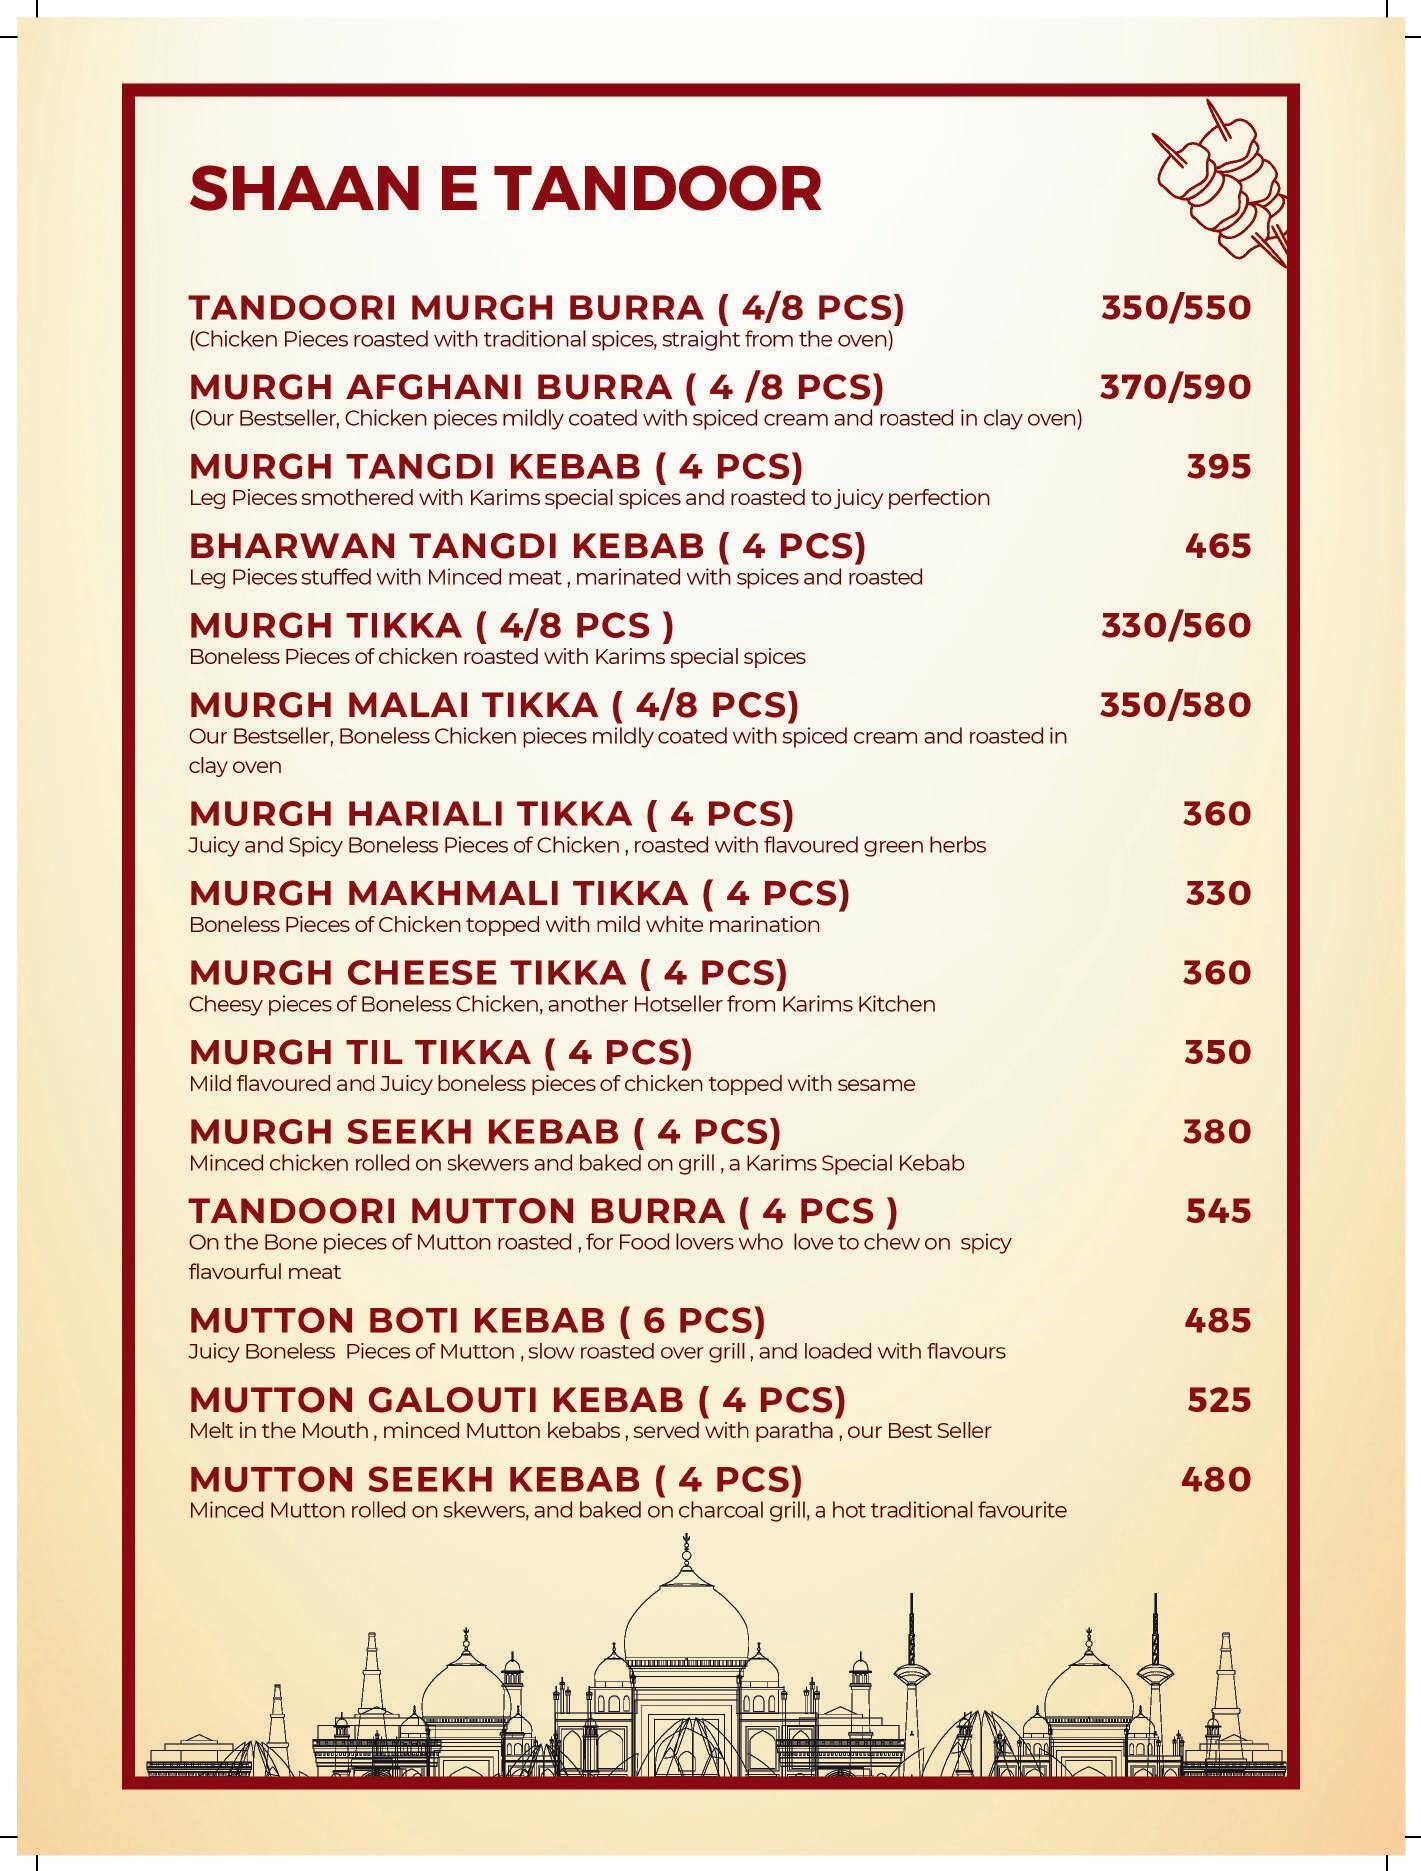 SHAAN E TANDOOR
TANDOORI MURGH BURRA ( 4/8 PCS) 350/550
(Chicken Pieces roasted with traditional spices, straight from the oven)
MURGH AFGHANI BURRA ( 4 /8 PCS) 370/590
(Our Bestseller, Chicken pieces mildly coated with spiced cream and roasted in clay oven)
MURGH TANGDI KEBAB ( 4 PCS) 395
Leg Pieces smothered with Karims special spices and roasted to juicy perfection
BHARWAN TANGDI KEBAB ( 4 PCS) 465
Leg Pieces stuffed with Minced meat , marinated with spices and roasted
MURGH TIKKA ( 4/8 PCS ) 330/560
Boneless Pieces of chicken roasted with Karims special spices
MURGH MALAI TIKKA ( 4/8 PCS) 350/580
Our Bestseller, Boneless Chicken pieces mildly coated with spiced cream and roasted in
clay oven
MURGH HARIALI TIKKA ( 4 PCS) 360
Juicy and Spicy Boneless Pieces of Chicken , roasted with flavoured green herbs
MURGH MAKHMALI TIKKA ( 4 PCS) 330
Boneless Pieces of Chicken topped with mild white marination
MURGH CHEESE TIKKA ( 4 PCS) 360
Cheesy pieces of Boneless Chicken, another Hotseller from Karims Kitchen
MURGH TIL TIKKA ( 4 PCS) 350
Mild flavoured and Juicy boneless pieces of chicken topped with sesame
MURGH SEEKH KEBAB ( 4 PCS) 380
Minced chicken rolled on skewers and baked on grill , a Karims Special Kebab
TANDOORI MUTTON BURRA ( 4 PCS ) 545
On the Bone pieces of Mutton roasted , for Food lovers who love to chew on spicy
flavourful meat
MUTTON BOTI KEBAB ( 6 PCS) 485
Juicy Boneless Pieces of Mutton , slow roasted over grill , and loaded with flavours
MUTTON GALOUTI KEBAB ( 4 PCS) 525
Melt in the Mouth , minced Mutton kebabs , served with paratha , our Best Seller
MUTTON SEEKH KEBAB ( 4 PCS) 480
Minced Mutton rolled on skewers, and baked on charcoal grill, a hot traditional favourite